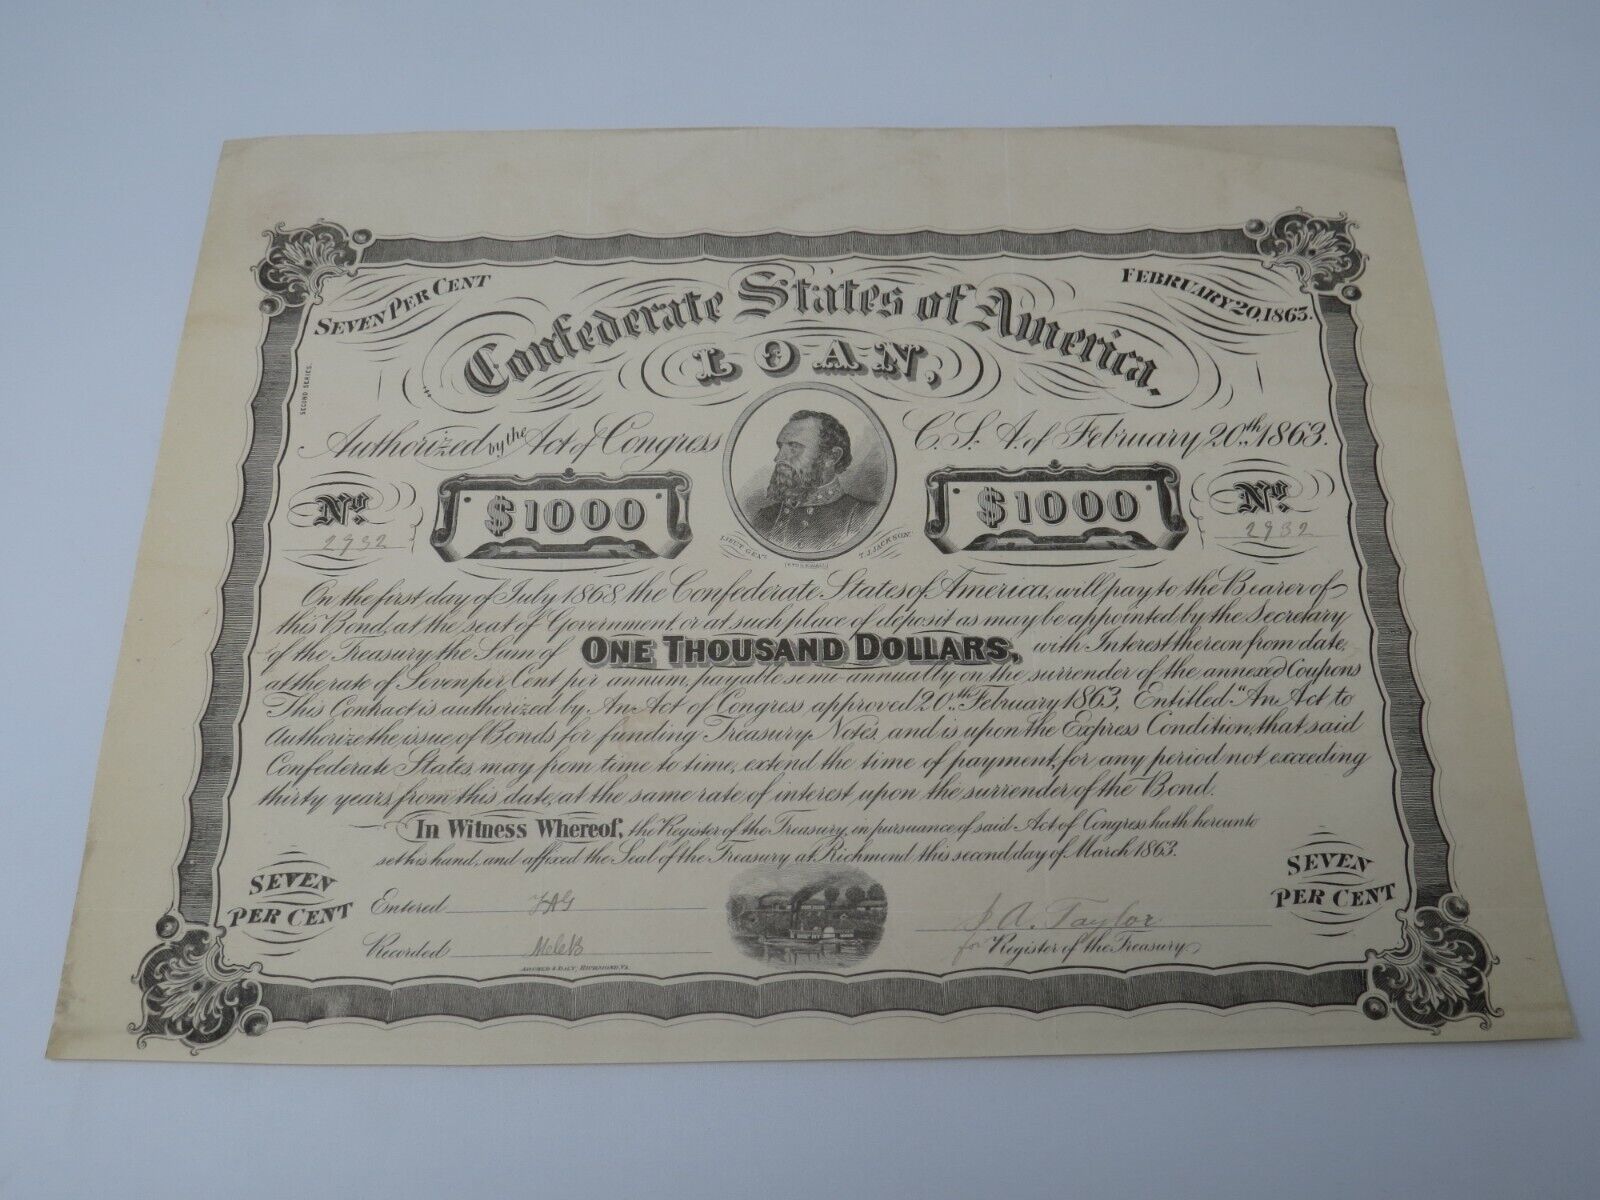 SEVEN PER CENT
FEBRUARY 20, 1863.
Confederate States of America.
LOAN,
SECOND SERIES.
Authorized by the Act of Congress C.S.A. of February 20.th 1863.
No. $1000 $1000 No.
2932 2932
LIEUT. GENL. T.J. JACKSON
On the first day of July 1868, the Confederate States of America, will pay to the Bearer of
this Bond, at the seat of Government, or at such place of deposit as may be appointed by the Secretary
of the Treasury, the Sum of ONE THOUSAND DOLLARS, with Interest thereon from date,
at the rate of Seven per Cent per annum, payable semi-annually on the surrender of the annexed Coupons
This Contract is authorized by An Act of Congress approved 20.th February 1863, Entitled "An Act to
Authorize the issue of Bonds for funding Treasury Notes, and is upon the Express Condition, that said
Confederate States, may from time to time, extend the time of payment, for any period not exceeding
thirty years, from this date, at the same rate of interest upon the surrender of the Bond.
In Witness Whereof, the Register of the Treasury, in pursuance of said Act of Congress hath hereunto
set his hand, and affixed the Seal of the Treasury at Richmond this second day of March 1863.
SEVEN PER CENT
SEVEN PER CENT
Entered
Recorded
ARCHER & DALY, RICHMOND, VA.
A. Taylor
for Register of the Treasury